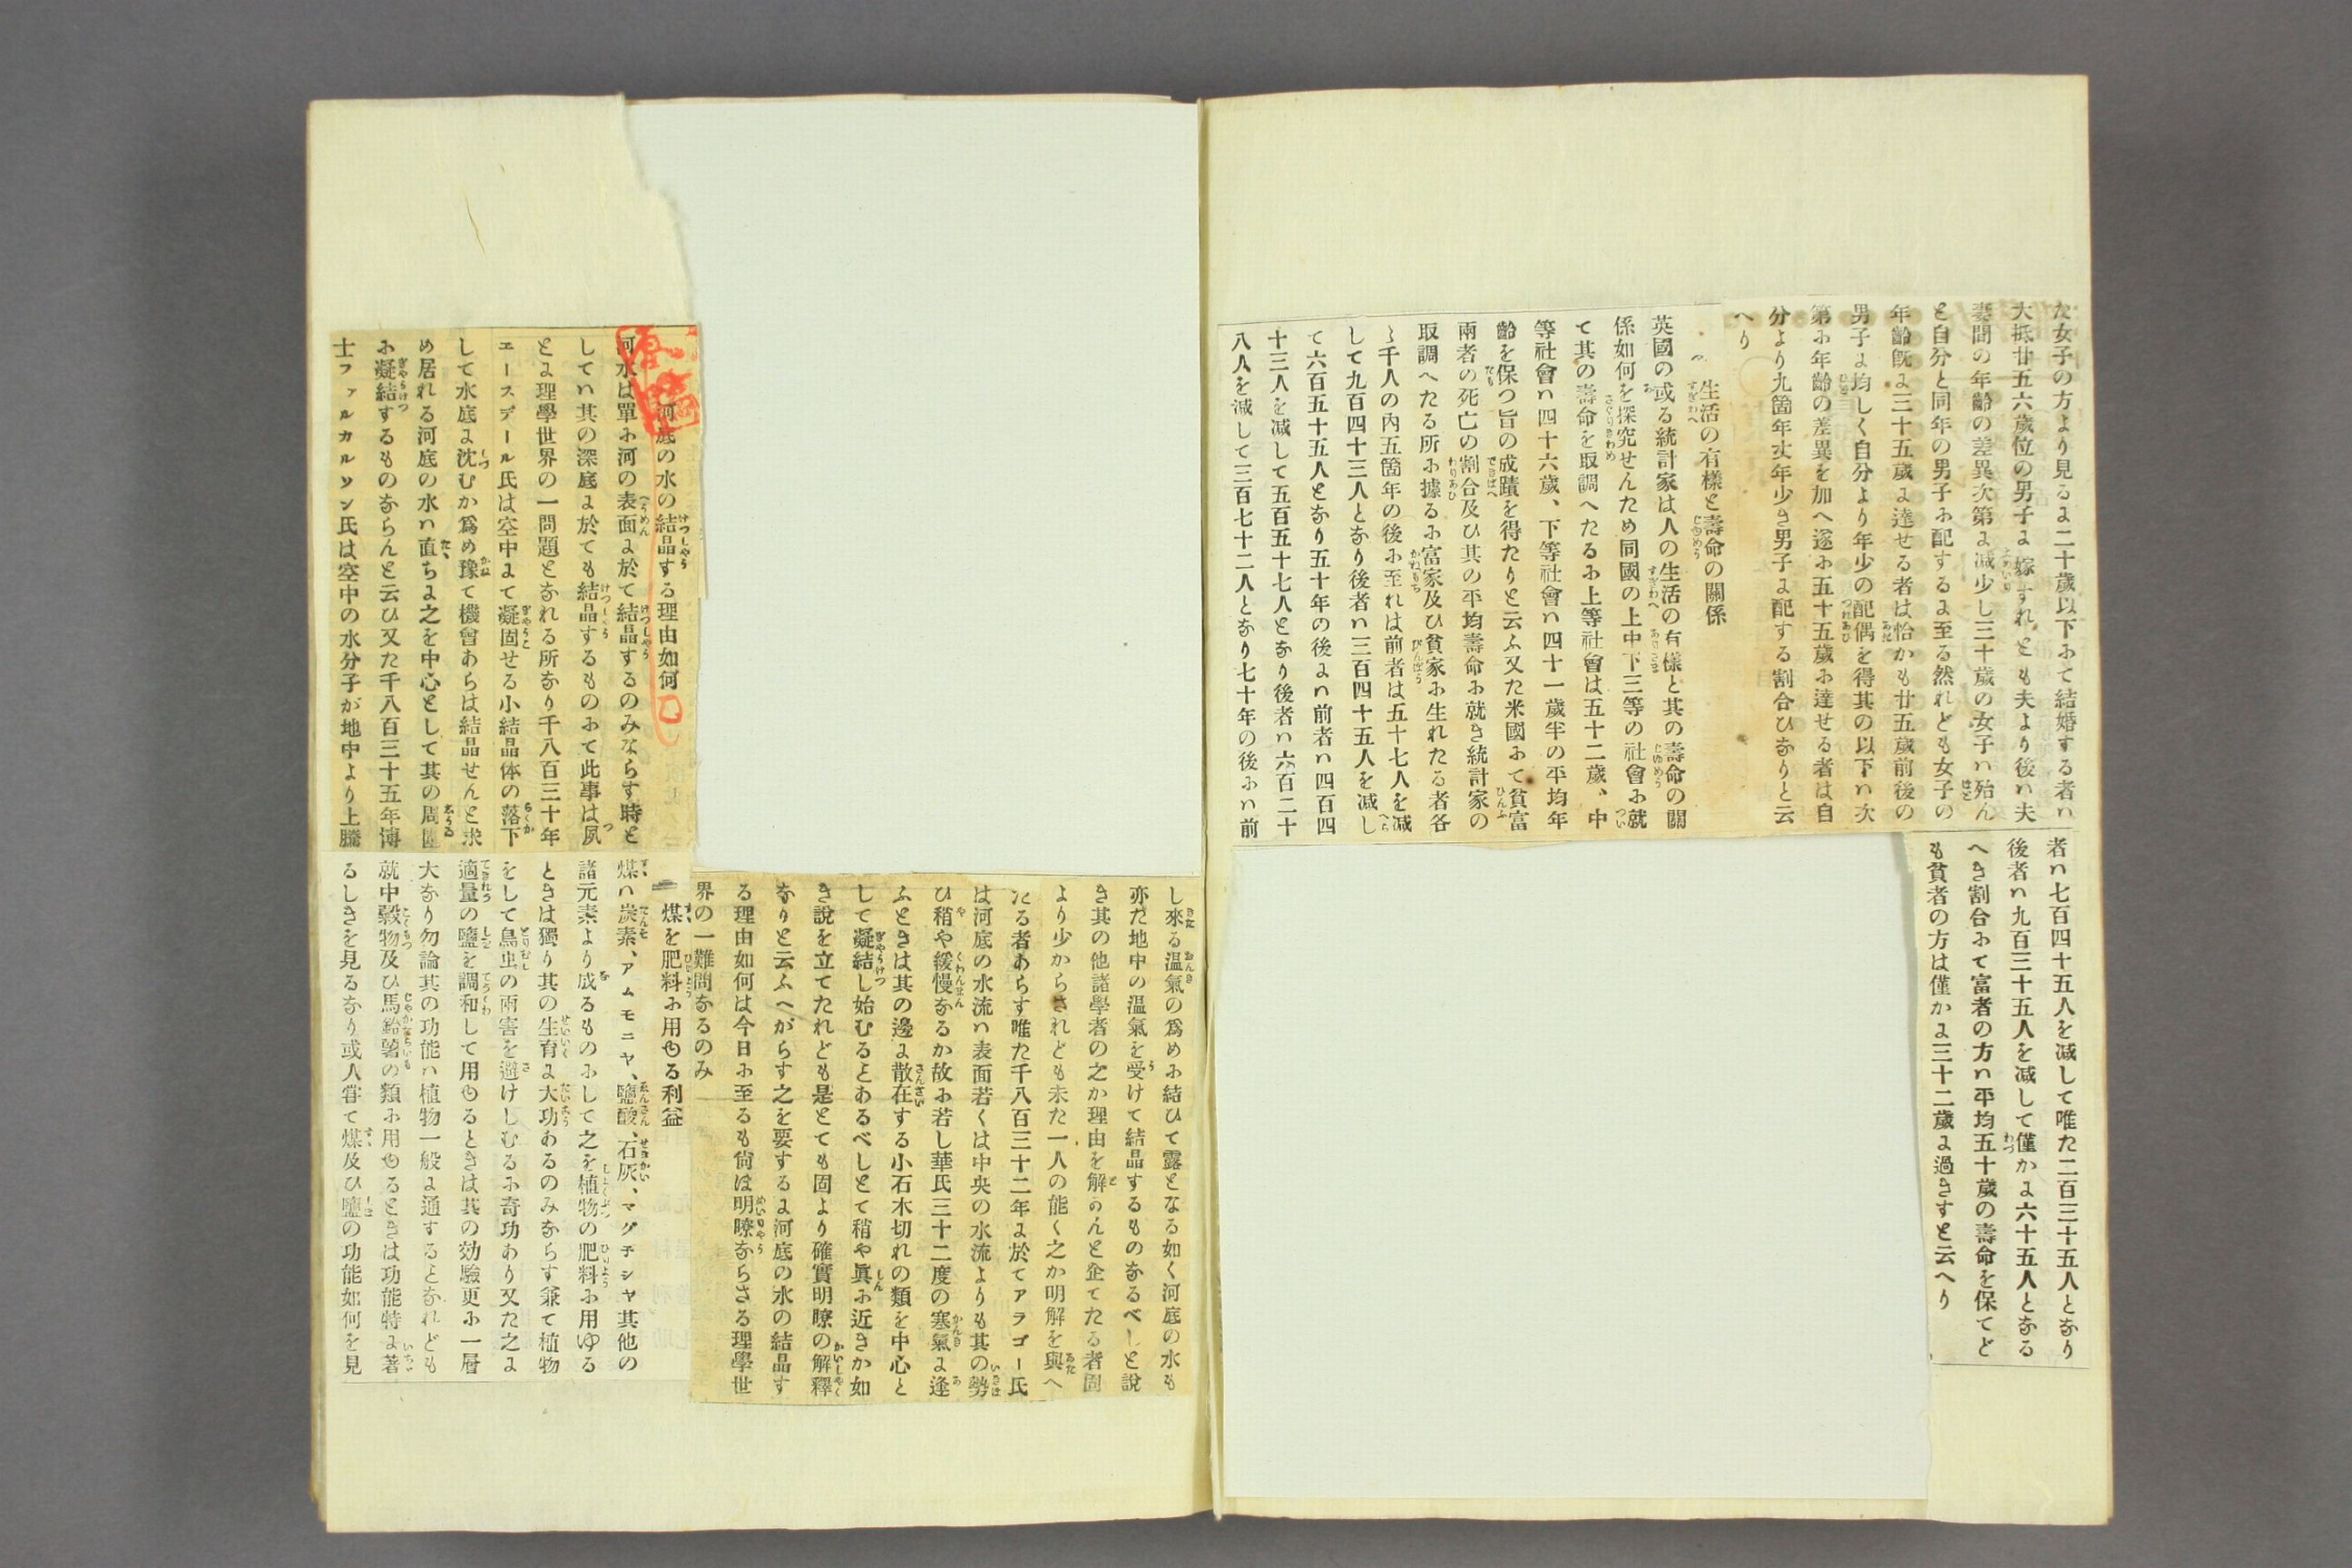 た女子の方より見るに二十歲以下にて結婚する者ハ
大抵廿五六歲位の男子に嫁すれとも夫より後ハ夫
妻間の年齡の差異次第に减少し三十歲の女子ハ殆ん
と自分と同年の男子に配するに至る然れども女子の
年齡旣に三十五歲に達せる者は恰かも廿五歲前後の
男子に均しく自分より年少の配偶を得其の以下ハ次
第に年齡の差異を加へ遂に五十五歲に達せる者は自
分より九箇年丈年少き男子に配する割合ひなりと云
へり
生活の有樣と壽命の關係
英國の或る統計家は人の生活の有樣と其の壽命の關
係如何を探究せんため同國の上中下三等の社會に就
て其の壽命を取調へたるに上等社會は五十二歲、中
等社會ハ四十六歲、下等社會ハ四十一歲半の平均年
齡を保つ旨の成蹟を得たりと云ふ又た米國にて貧富
兩者の死亡の割合及ひ其の平均壽命に就き統計家の
取調へたる所に據るに富家及ひ貧家に生れたる者各
〻千人の內五箇年の後に至れは前者は五十七人を减
して九百四十三人となり後者ハ三百四十五人を减し
て六百五十五人となり五十年の後にハ前者ハ四百四
十三人を减して五百五十七人となり後者ハ六百二十
八人を减して三百七十二人となり七十年の後にハ前
者ハ七百四十五人を减して唯た二百三十五人となり
後者ハ九百三十五人を减して僅かに六十五人となる
へき割合にて富者の方ハ平均五十歲の壽命を保てど
も貧者の方は僅かに三十二歲に過きすと云へり
河底の水の結晶する理由如何
河水は單に河の表面に於て結晶するのみならす時と
してハ其の深底に於ても結晶するものにて此事は夙
とに理學世界の一問題となれる所なり千八百三十年
エースデール氏は空中にて凝固せる小結晶体の落下
して水底に沈むか爲め豫て機會あらは結晶せんと求
め居れる河底の水ハ直ちに之を中心として其の周圍
に凝結するものならんと云ひ又た千八百三十五年博
士ファルカルソン氏は空中の水分子が地中より上騰
し來る溫氣の爲めに結ひて露となる如く河底の水も
亦た地中の溫氣を受けて結晶するものなるべしと說
き其の他諸學者の之か理由を解かんと企てたる者固
より少からされども未た一人の能く之か明解を與へ
たる者あらす唯た千八百三十二年に於てアラゴー氏
は河底の水流ハ表面若くは中央の水流よりも其の勢
ひ稍や緩慢なるか故に若し華氏三十二度の寒氣に逢
ふときは其の邊に散在する小石木切れの類を中心と
して凝結し始むるとあるべしとて稍や眞に近きか如
き說を立てたれども是とても固より確實明瞭の解釋
なりと云ふへがらす之を要するに河底の水の結晶す
る理由如何は今日に至るも尙ほ明瞭ならさる理學世
界の一難問なるのみ
煤を肥料に用ゆる利益
煤ハ炭素、アムモニヤ、鹽酸、石灰、マグ子シヤ其他の
諸元素より成るものにして之を植物の肥料に用ゆる
ときは獨り其の生育に大功あるのみならす兼て植物
をして鳥虫の兩害を避けしむるに奇功あり又た之に
適量の鹽を調和して用ゆるときは其の効驗更に一層
大なり勿論其の功能ハ植物一般に通するとなれども
就中穀物及ひ馬鈴薯の類に用ゆるときは功能特に著
るしきを見るなり或人甞て煤及ひ鹽の功能如何を見